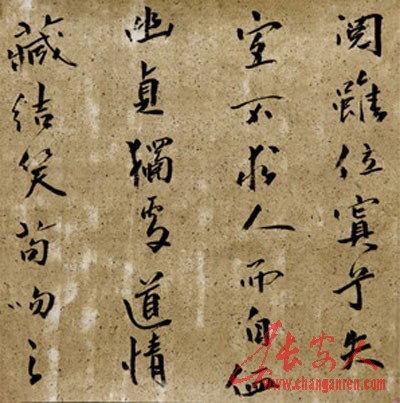 雖位寘于失
室不求人而自
幽貞獨處道情
藏結笑苟吻之
www.changanren.com